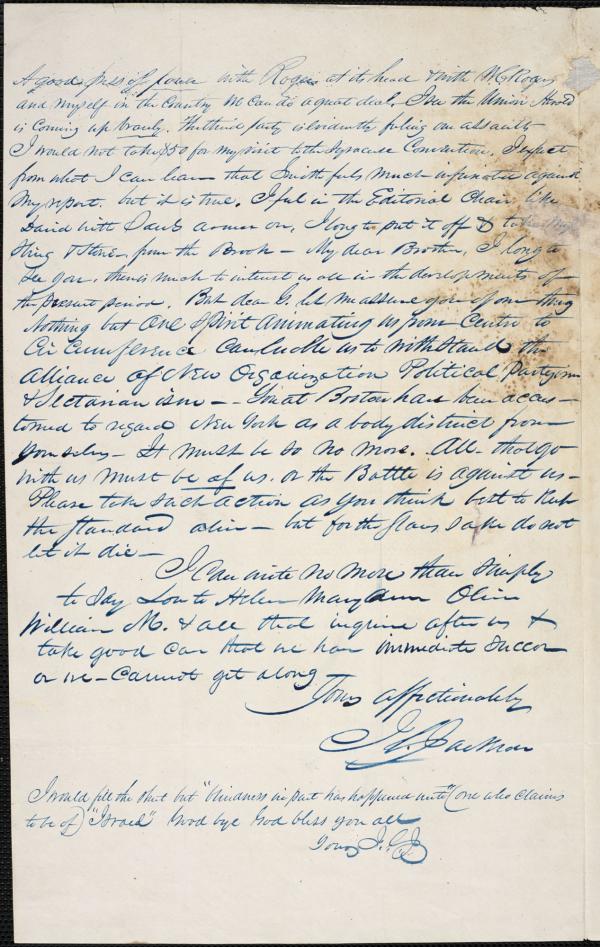 A good press of power with Rogers at its head & with McRogers
and myself in the Country we can do a great deal. I see the Union Herald
is coming up bravely. The third party is evidently feeling our assaults
I would not take $50 for my visit to the Syracuse Convention. I infer
from what I can learn that Smith feels much against
my report. but it is true. I feel in the Editorial Chair like
David with Sauls armor on, I long to put it off & take my
Sling & Stone from the Brook — My dear Brother, I long to
see you, there is much to interest us all in the developments of
the present period. But dear G. let me assure you of one thing
Nothing but one spirit animating us from Centre to
Circumference can enable us to withstand the
Alliance of New Organization Political Partyism
& Sectarianism — You at Boston have been accus-
tomed to regard New York as a body distinct from
yourselves — It must be so no more. All that go
with us must be of us. or the Battle is against us —
Please take such action as you think best to keep
the standard alive — but for the slaves sake do not
let it die —
I can write no more than simply
to say Love to Helen Mary Ann Oliver
William M. & all that inquire after us &
take good care that we have immediate succor
or we — cannot get along
Yours affectionately
J. C. Jackson
I would fill the sheet but "blindness in part has happened unto" (one who claims
to be of) "Israel" Good bye God bless you all
Yours J.C.J.